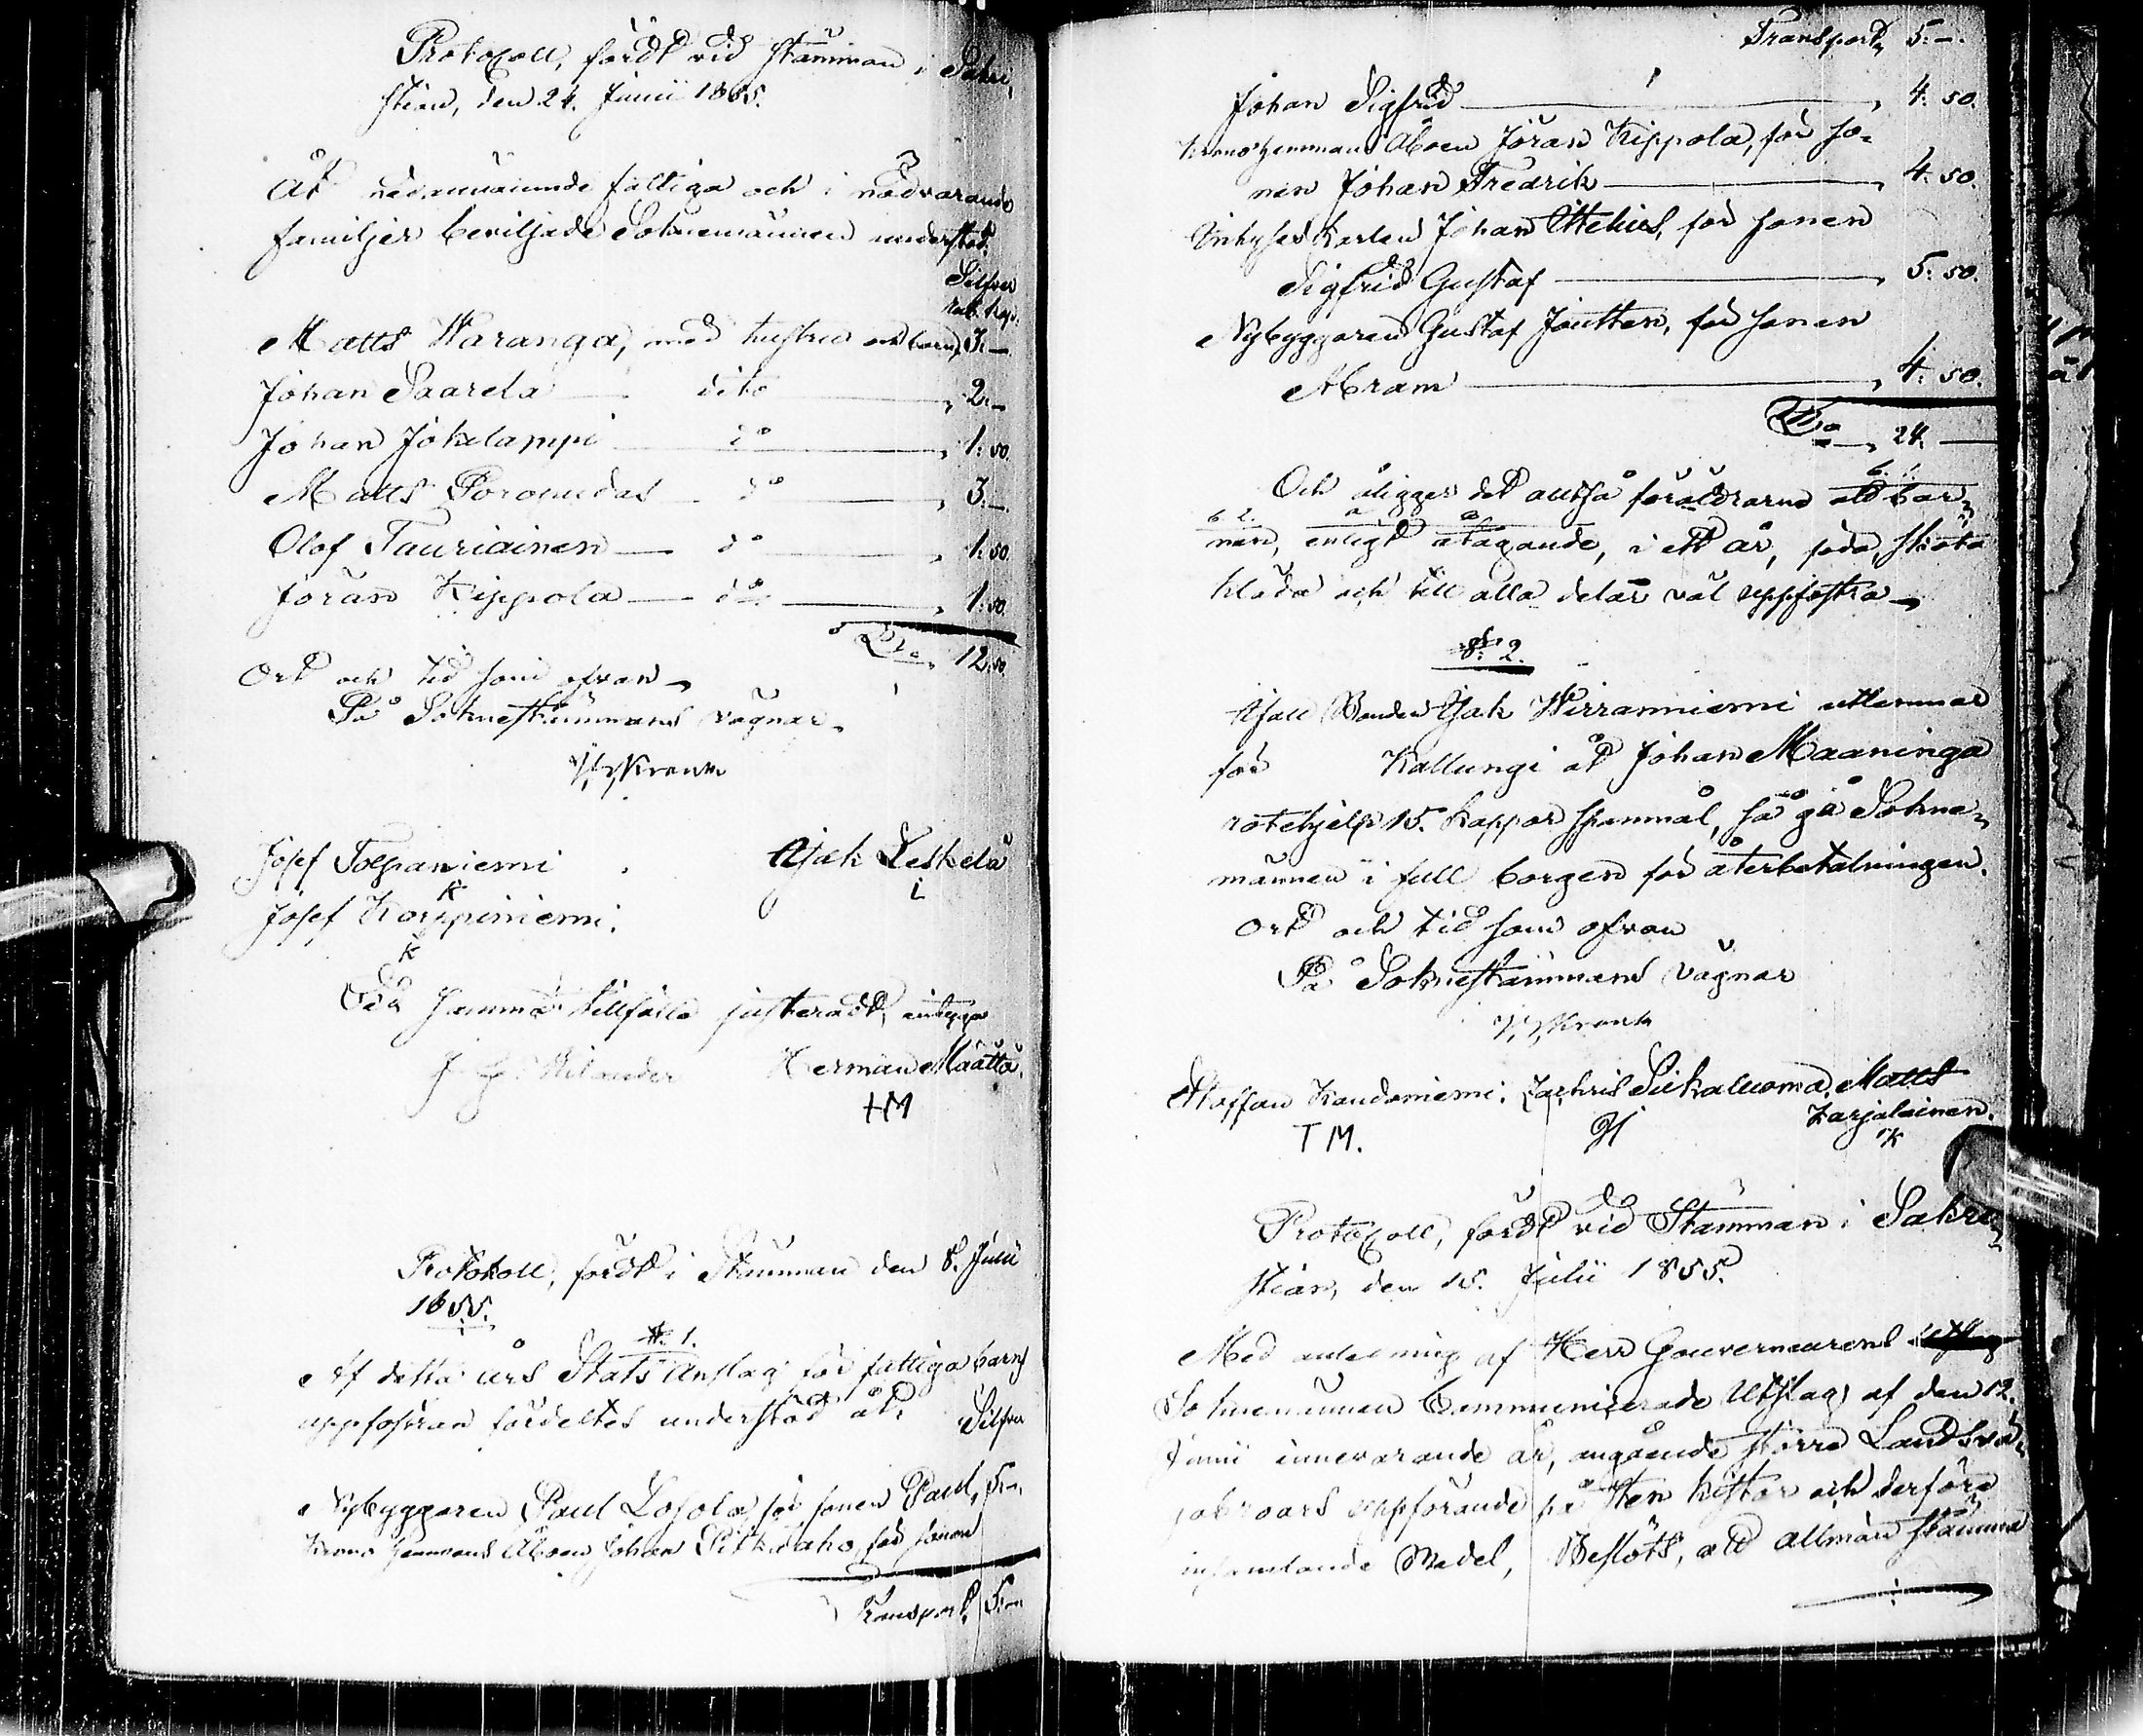 Protocoll, fördt vid stämman i Sakri,
stian, den 24. Junii 1855.
Åt nedannämnde fattiga och i nödvarande
familjer beviljade Soknemännen understöd.
Silfver
rub. kop.
Matts Waranga, med hustru och barn, 3.—
Johan Saarela — dito — " 2.—
Johan Jokelampi — do — " 1.50.
Matts Poropudas — do — " 3.—
Olof Tauriainen — do — " 1.50.
Jöran Kippola — do — " 1.50.
S:a 12.50.
Ort och tid som ofvan,
På Soknestämmans vägnar,
Josef Tolpaniemi Isak Leskelä
Josef Korppiniemi.
K
Vid samma tillfälle justeradt, intyga
Herman Määttä.
HM
Protokoll, fördt i Stämman den 8. Julii
1855.
§. 1.
Af detta års Stats Anslag för fattiga barns
uppfostran fördeltes understöd åt: Silfver
Nybyggaren Paul Lohola, för sonen Paul, 5.—
Krono hemmans Åboen Johan Pitkäaho, för sonen
Transport, 5.—
Transport, 5.—.
Johan Sigfrid — " 4. 50.
Kronohemmans Åboen Jöran Kippola, för so-
nen Johan Fredrik — " 4. 50.
Inhyses Karlen Johan Ittelius, för sonen
Sigfrid Gustaf — " 5. 50.
Nybyggaren Gustaf Joutten, för sonen
Abram — " 4. 50.
S:a — " 24. —
Och åligger det alltså föräldrarne att bar-
nen, enligt åtagande, i ett år, föda, sköta
kläda och till alla delar väl uppfostra.
§. 2.
Ifall Bonden Isak Wirranniemi utlemnar
för Kallungi åt Johan Maaninga
rotehjelp 15. kappar spanmål, så gå Sokne-
männen i full borgen för återbetalningen.
Ort och tid som ofvan
På Soknestämmans vägnar
Staffan Kandoniemi. Zachris Siikaluoma. Matts
Karjalainen.
T M.
K
Protocoll, fördt vid Stämman i Sakri-
stian, den 15. Julii 1855.
Med anledning af Herr Gouverneurens
Soknemännen Communicerade Utslag af den 12.
Junii innevarande år, angående större Landsvä-
gabroars uppförande på sten kistor och derföre
insamlande Medel, Beslöts, att allmän stämma